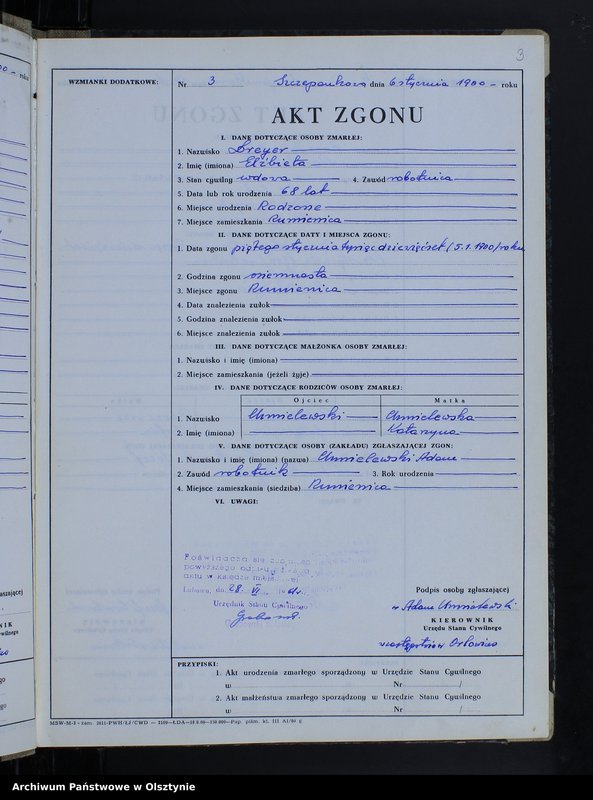 3
WZMIANKI DODATKOWE:
Nr 3 Szczepankowo dnia 6 stycznia 1900 – roku
AKT ZGONU
I. DANE DOTYCZĄCE OSOBY ZMARŁEJ:
1. Nazwisko Dreyer
2. Imię (imiona) Elżbieta
3. Stan cywilny wdowa 4. Zawód robotnica
5. Data lub rok urodzenia 68 lat
6. Miejsce urodzenia Rodzone
7. Miejsce zamieszkania Rumienica
II. DANE DOTYCZĄCE DATY I MIEJSCA ZGONU:
1. Data zgonu piątego stycznia tysiąc dziewięćset /5.1.1900/ roku
2. Godzina zgonu osiemnasta
3. Miejsce zgonu Rumienica
4. Data znalezienia zwłok
5. Godzina znalezienia zwłok
6. Miejsce znalezienia zwłok
III. DANE DOTYCZĄCE MAŁŻONKA OSOBY ZMARŁEJ:
1. Nazwisko i imię (imiona)
2. Miejsce zamieszkania (jeżeli żyje)
IV. DANE DOTYCZĄCE RODZICÓW OSOBY ZMARŁEJ:
Ojciec Matka
1. Nazwisko Chmielewski Chmielewska
2. Imię (imiona) Katarzyna
V. DANE DOTYCZĄCE OSOBY (ZAKŁADU) ZGŁASZAJĄCEJ ZGON:
1. Nazwisko i imię (imiona) (nazwa) Chmielewski Adam
2. Zawód robotnik 3. Rok urodzenia
4. Miejsce zamieszkania (siedziba) Rumienica
VI. UWAGI:
Poświadcza się zgodność
powyższego odpisu z treścią
aktu w księdze
Lubawa, dn. 28. VI. 19
Urzędnik Stanu Cywilnego
Podpis osoby zgłaszającej
Adam Chmielewski
KIEROWNIK
Urzędu Stanu Cywilnego
w zastępstwie Orłowius
PRZYPISKI:
1. Akt urodzenia zmarłego sporządzony w Urzędzie Stanu Cywilnego
w Nr /
2. Akt małżeństwa zmarłego sporządzony w Urzędzie Stanu Cywilnego
w Nr /
Archiwum Państwowe w Olsztynie